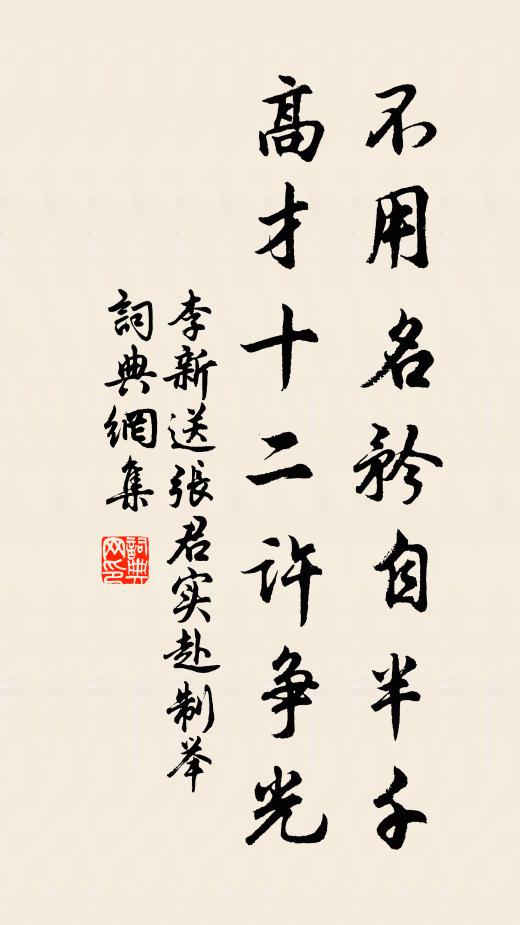 不用名矜自半千
高才十二许争光
李新送張君实赴制举
詞典網集
詞典
网印